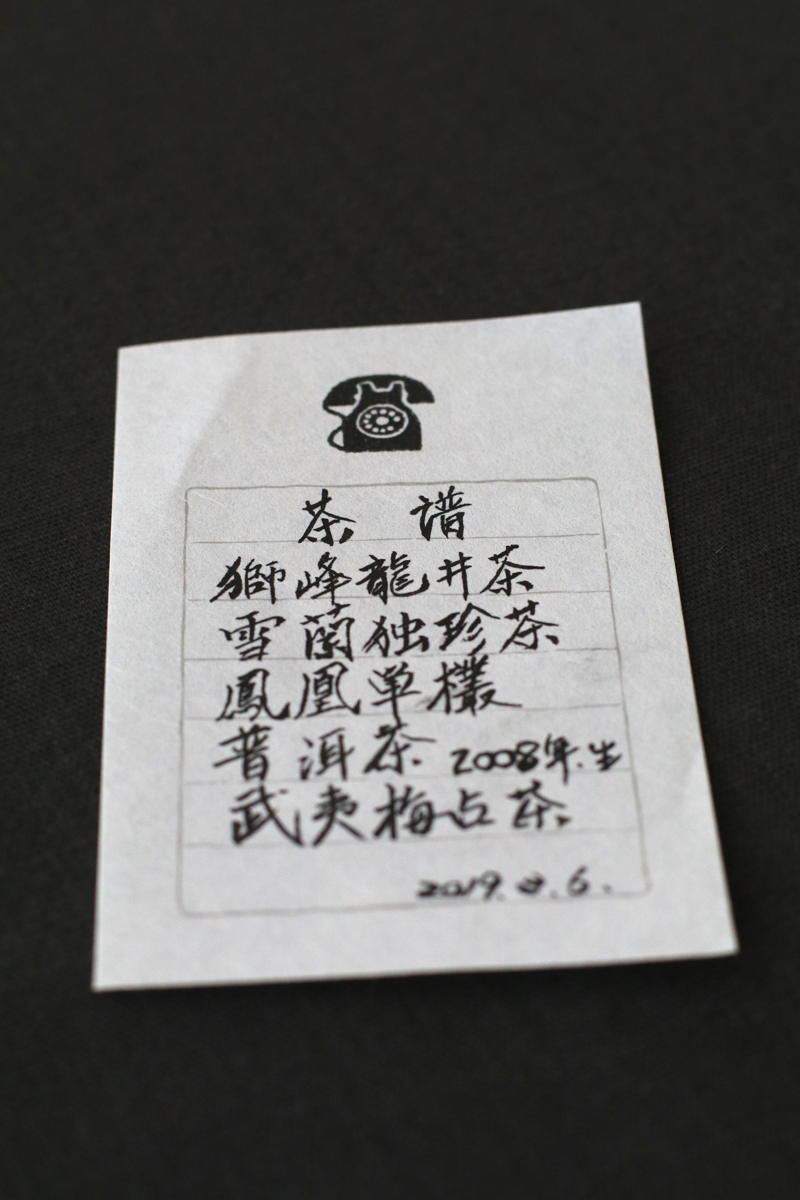 茶 谱
獅峰龍井茶
雪蘭独珍茶
鳳凰单欉
普洱茶 2008年.生
武夷梅占茶
2019. 6.